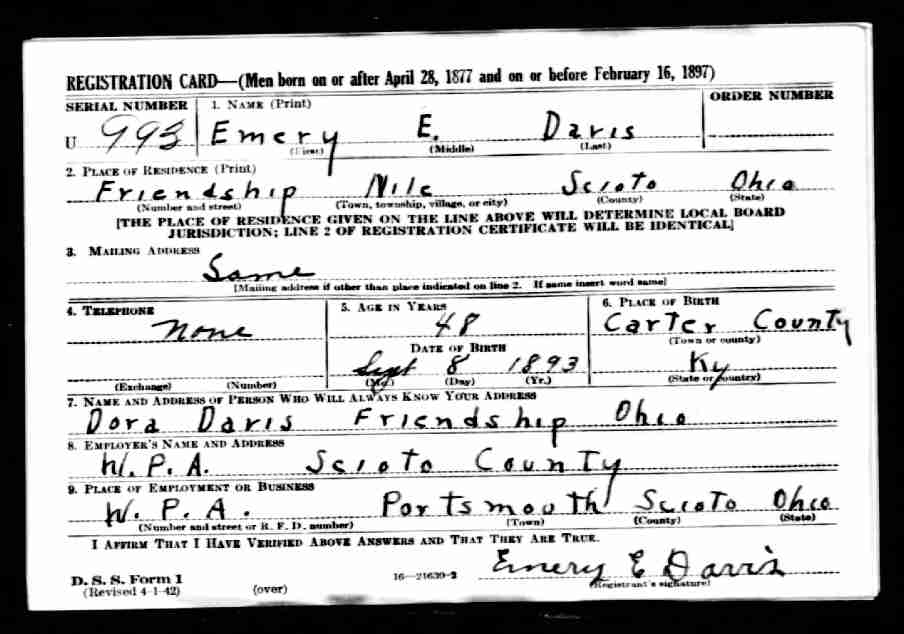 REGISTRATION CARD—(Men born on or after April 28, 1877 and on or before February 16, 1897)
SERIAL NUMBER 1. NAME (Print) ORDER NUMBER
U 993 Emery E. Davis
(First) (Middle) (Last)
2. PLACE OF RESIDENCE (Print)
Friendship Nile Scioto Ohio
(Number and street) (Town, township, village, or city) (County) (State)
[THE PLACE OF RESIDENCE GIVEN ON THE LINE ABOVE WILL DETERMINE LOCAL BOARD
JURISDICTION; LINE 2 OF REGISTRATION CERTIFICATE WILL BE IDENTICAL]
3. MAILING ADDRESS
Same
[Mailing address if other than place indicated on line 2. If same insert word same]
4. TELEPHONE 5. AGE IN YEARS 6. PLACE OF BIRTH
None 48 Carter County
(Town or county)
DATE OF BIRTH
Sept 8 1893 Ky
(Exchange) (Number) (Mo.) (Day) (Yr.) (State or country)
7. NAME AND ADDRESS OF PERSON WHO WILL ALWAYS KNOW YOUR ADDRESS
Dora Davis Friendship Ohio
8. EMPLOYER'S NAME AND ADDRESS
W.P.A. Scioto County
9. PLACE OF EMPLOYMENT OR BUSINESS
W.P.A. Portsmouth Scioto Ohio
(Number and street or R. F. D. number) (Town) (County) (State)
I AFFIRM THAT I HAVE VERIFIED ABOVE ANSWERS AND THAT THEY ARE TRUE.
Emery E Davis
D. S. S. Form 1 16—21630-2 (Registrant's signature)
(Revised 4-1-42) (over)